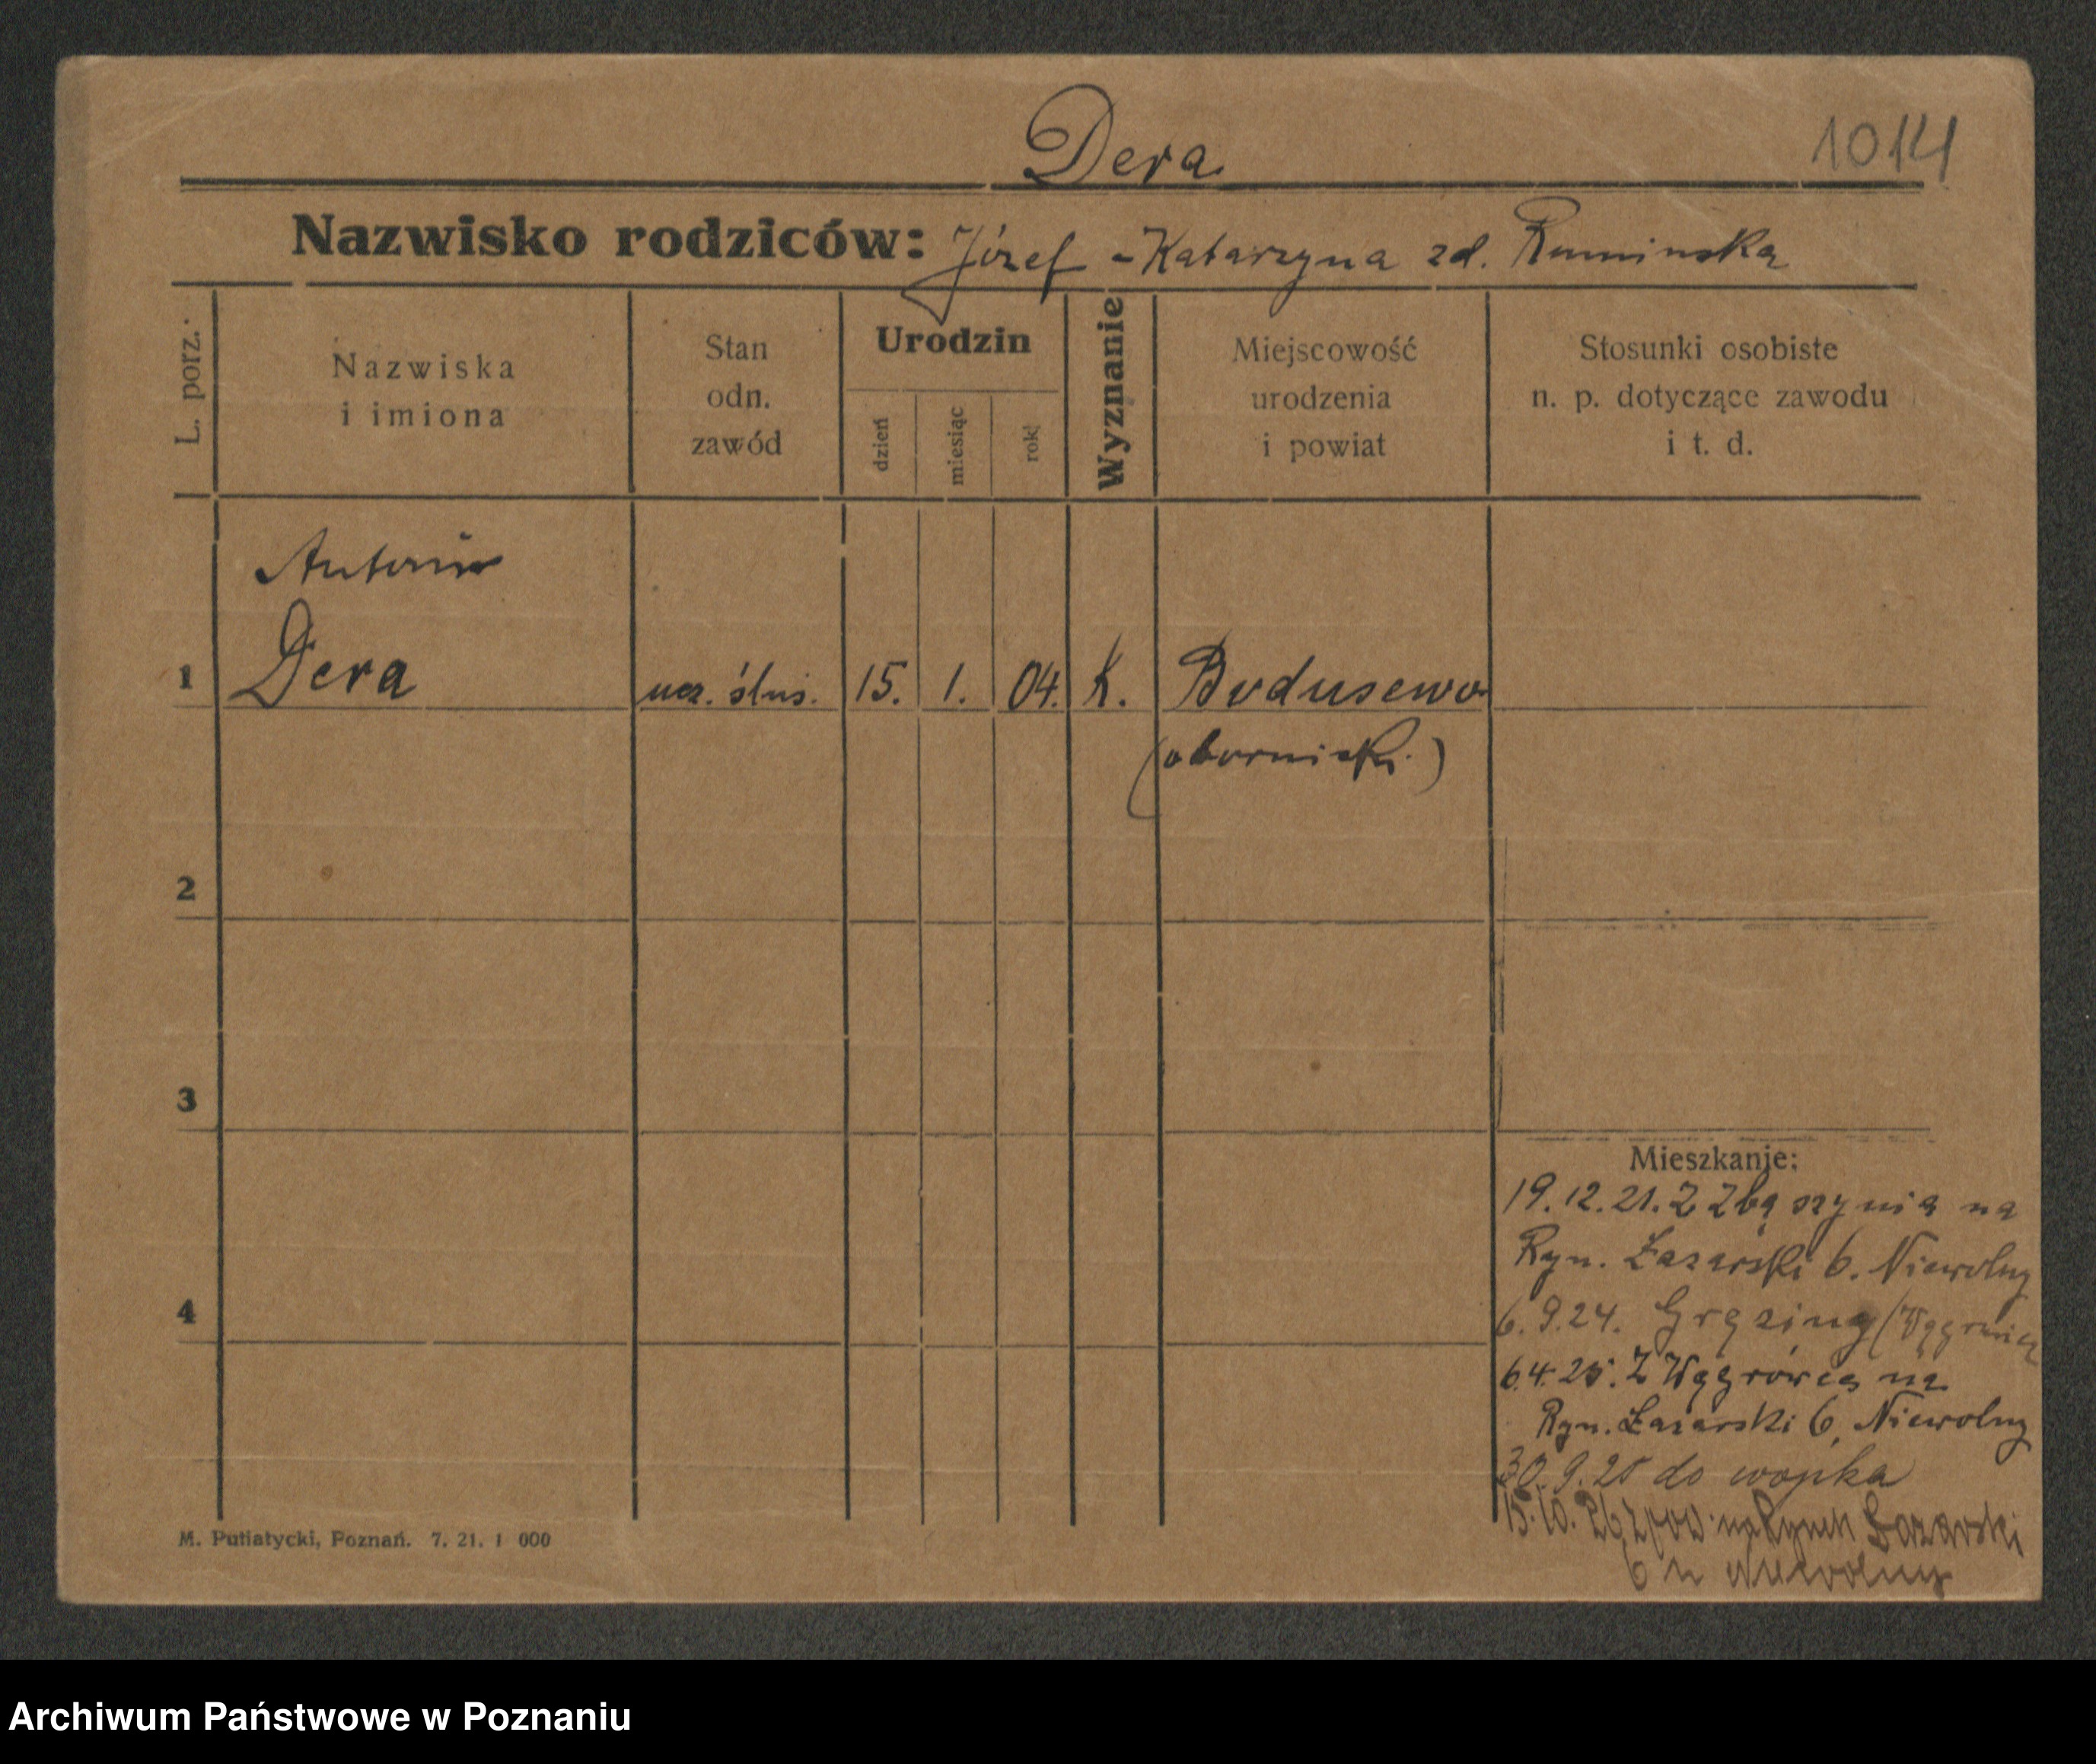 Dera
1014
Nazwisko rodziców: Józef - Katarzyna zd. Ruminska
L. porz.
Nazwiska
i imiona
Stan
odn.
zawód
Urodzin
dzień
miesiąc
rok
Wyznanie
Miejscowość
urodzenia
i powiat
Stosunki osobiste
n. p. dotyczące zawodu
i t. d.
Antoni
1 Dera ucz. ślus. 15. 1. 04. K. Bodusewo
(obornicki)
2
3
4
Mieszkanie:
19.12.21. Z Zbąszynia na
Ryn. Łazarski 6. Niewolny
6.9.24. Gręziny
6.4.25. Z Wągrówca na
Ryn. Łazarski 6, Niewolny
30.9.25 do wojska
15.10.26 na Rynek Łazarski
6 u Niewolny
M. Putiatycki, Poznań. 7. 21. 1 000
Archiwum Państwowe w Poznaniu